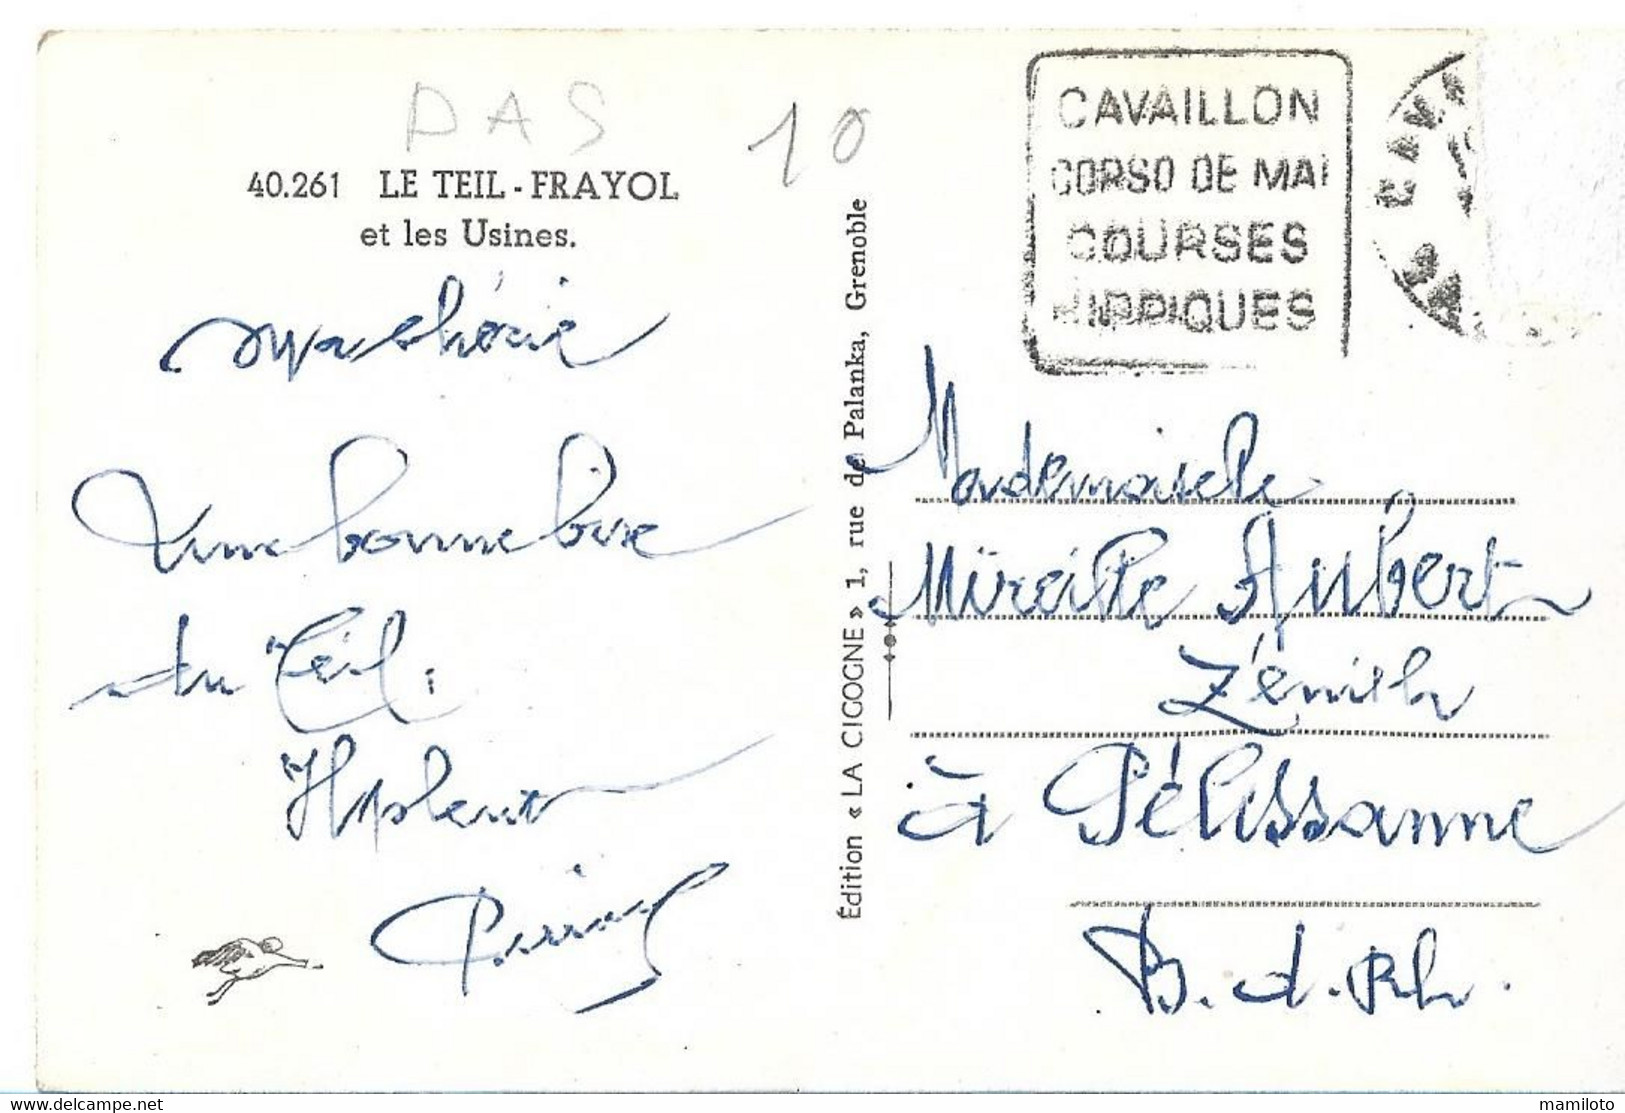 DAS
10
40.261 LE TEIL - FRAYOL
et les Usines.
Ma chérie
Une bonne bise
du Teil.
Il pleut
Édition « LA CICOGNE » 1, rue de Palanka, Grenoble
CAVAILLON
CORSO DE MAI
COURSES
HIPPIQUES
CAVA
Mademoiselle
Mireille Aubert
Zénith
à Pélissanne
B. d. Rh.
www.delcampe.net
mamiloto